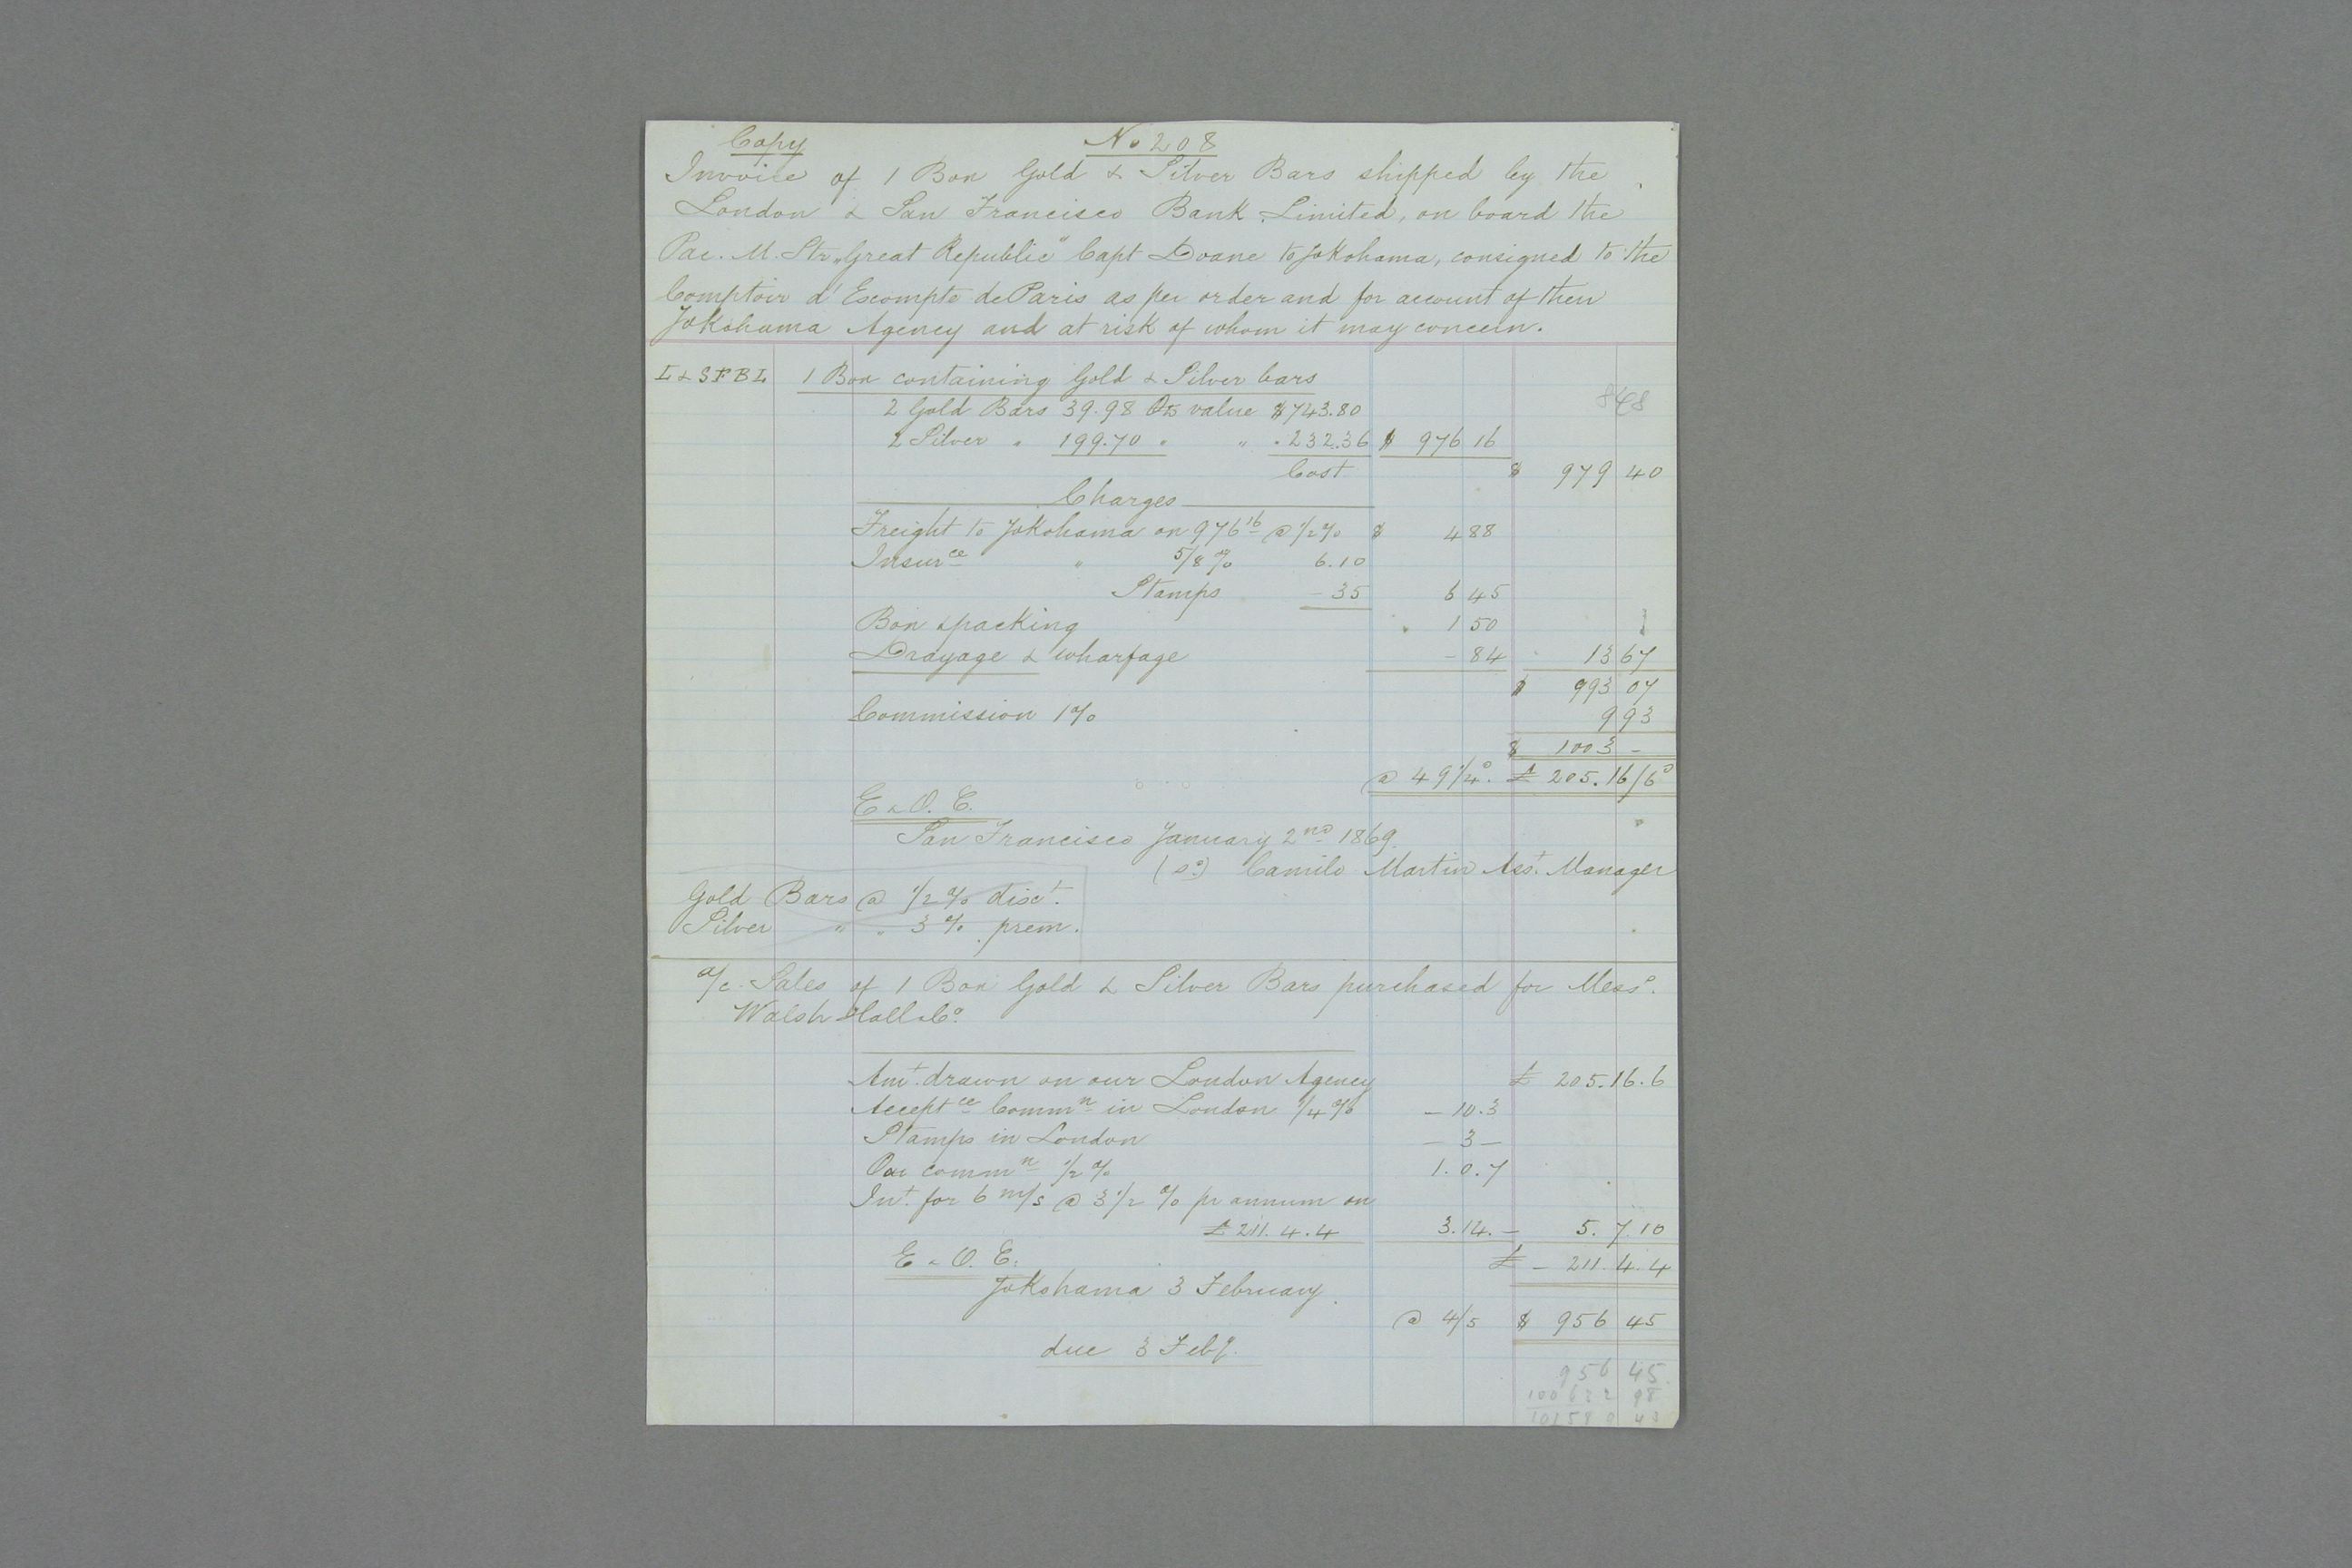 Copy No 208
Invoice of 1 Box Gold & Silver Bars shipped by the
London & San Francisco Bank Limited, on board the
Pac. M. Str „Great Republic" Capt Doane to Yokohama, consigned to the
Comptoir d'Escompte de Paris as per order and for account of their
Yokohama Agency and at risk of whom it may concern.
L & SFBL 1 Box containing Gold & Silver bars
2 Gold Bars 39.98 Ozs value $743.80
2 Silver " 199.70 " " " 232.36 $ 976 16
Cost $ 979 40
Charges
Freight to Yokohama on 976 16 @ 1/2 % $ 4 88
Insurce " 5/8 % 6.10
Stamps - 35 6 45
Box & packing 1 50
Drayage & wharfage - 84 13 67
$ 993 07
Commission 1 % 9 93
$ 1003 -
@ 49 1/4 d. £ 205.16/6 d
E & O. E.
San Francisco January 2nd 1869.
(sd) Camilo Martin Asst. Manager
Gold Bars @ 1/2 % disct.
Silver " " 3 % prem.
a/c Sales of 1 Box Gold & Silver Bars purchased for Messs.
Walsh Hall & Co.
Amt. drawn on our London Agency £ 205.16.6
Acceptce Commn in London 1/4 % - 10.3
Stamps in London - 3 -
Our commn 1/2 % 1.0.7
Int. for 6 m/s @ 3 1/2 % pr annum on
£ 211.4.4 3.14. - 5.7.10
E & O. E. £ - 211.4.4
Yokohama 3 February.
@ 4/5 $ 956 45
due 3 Feby.
956 45
100622 98